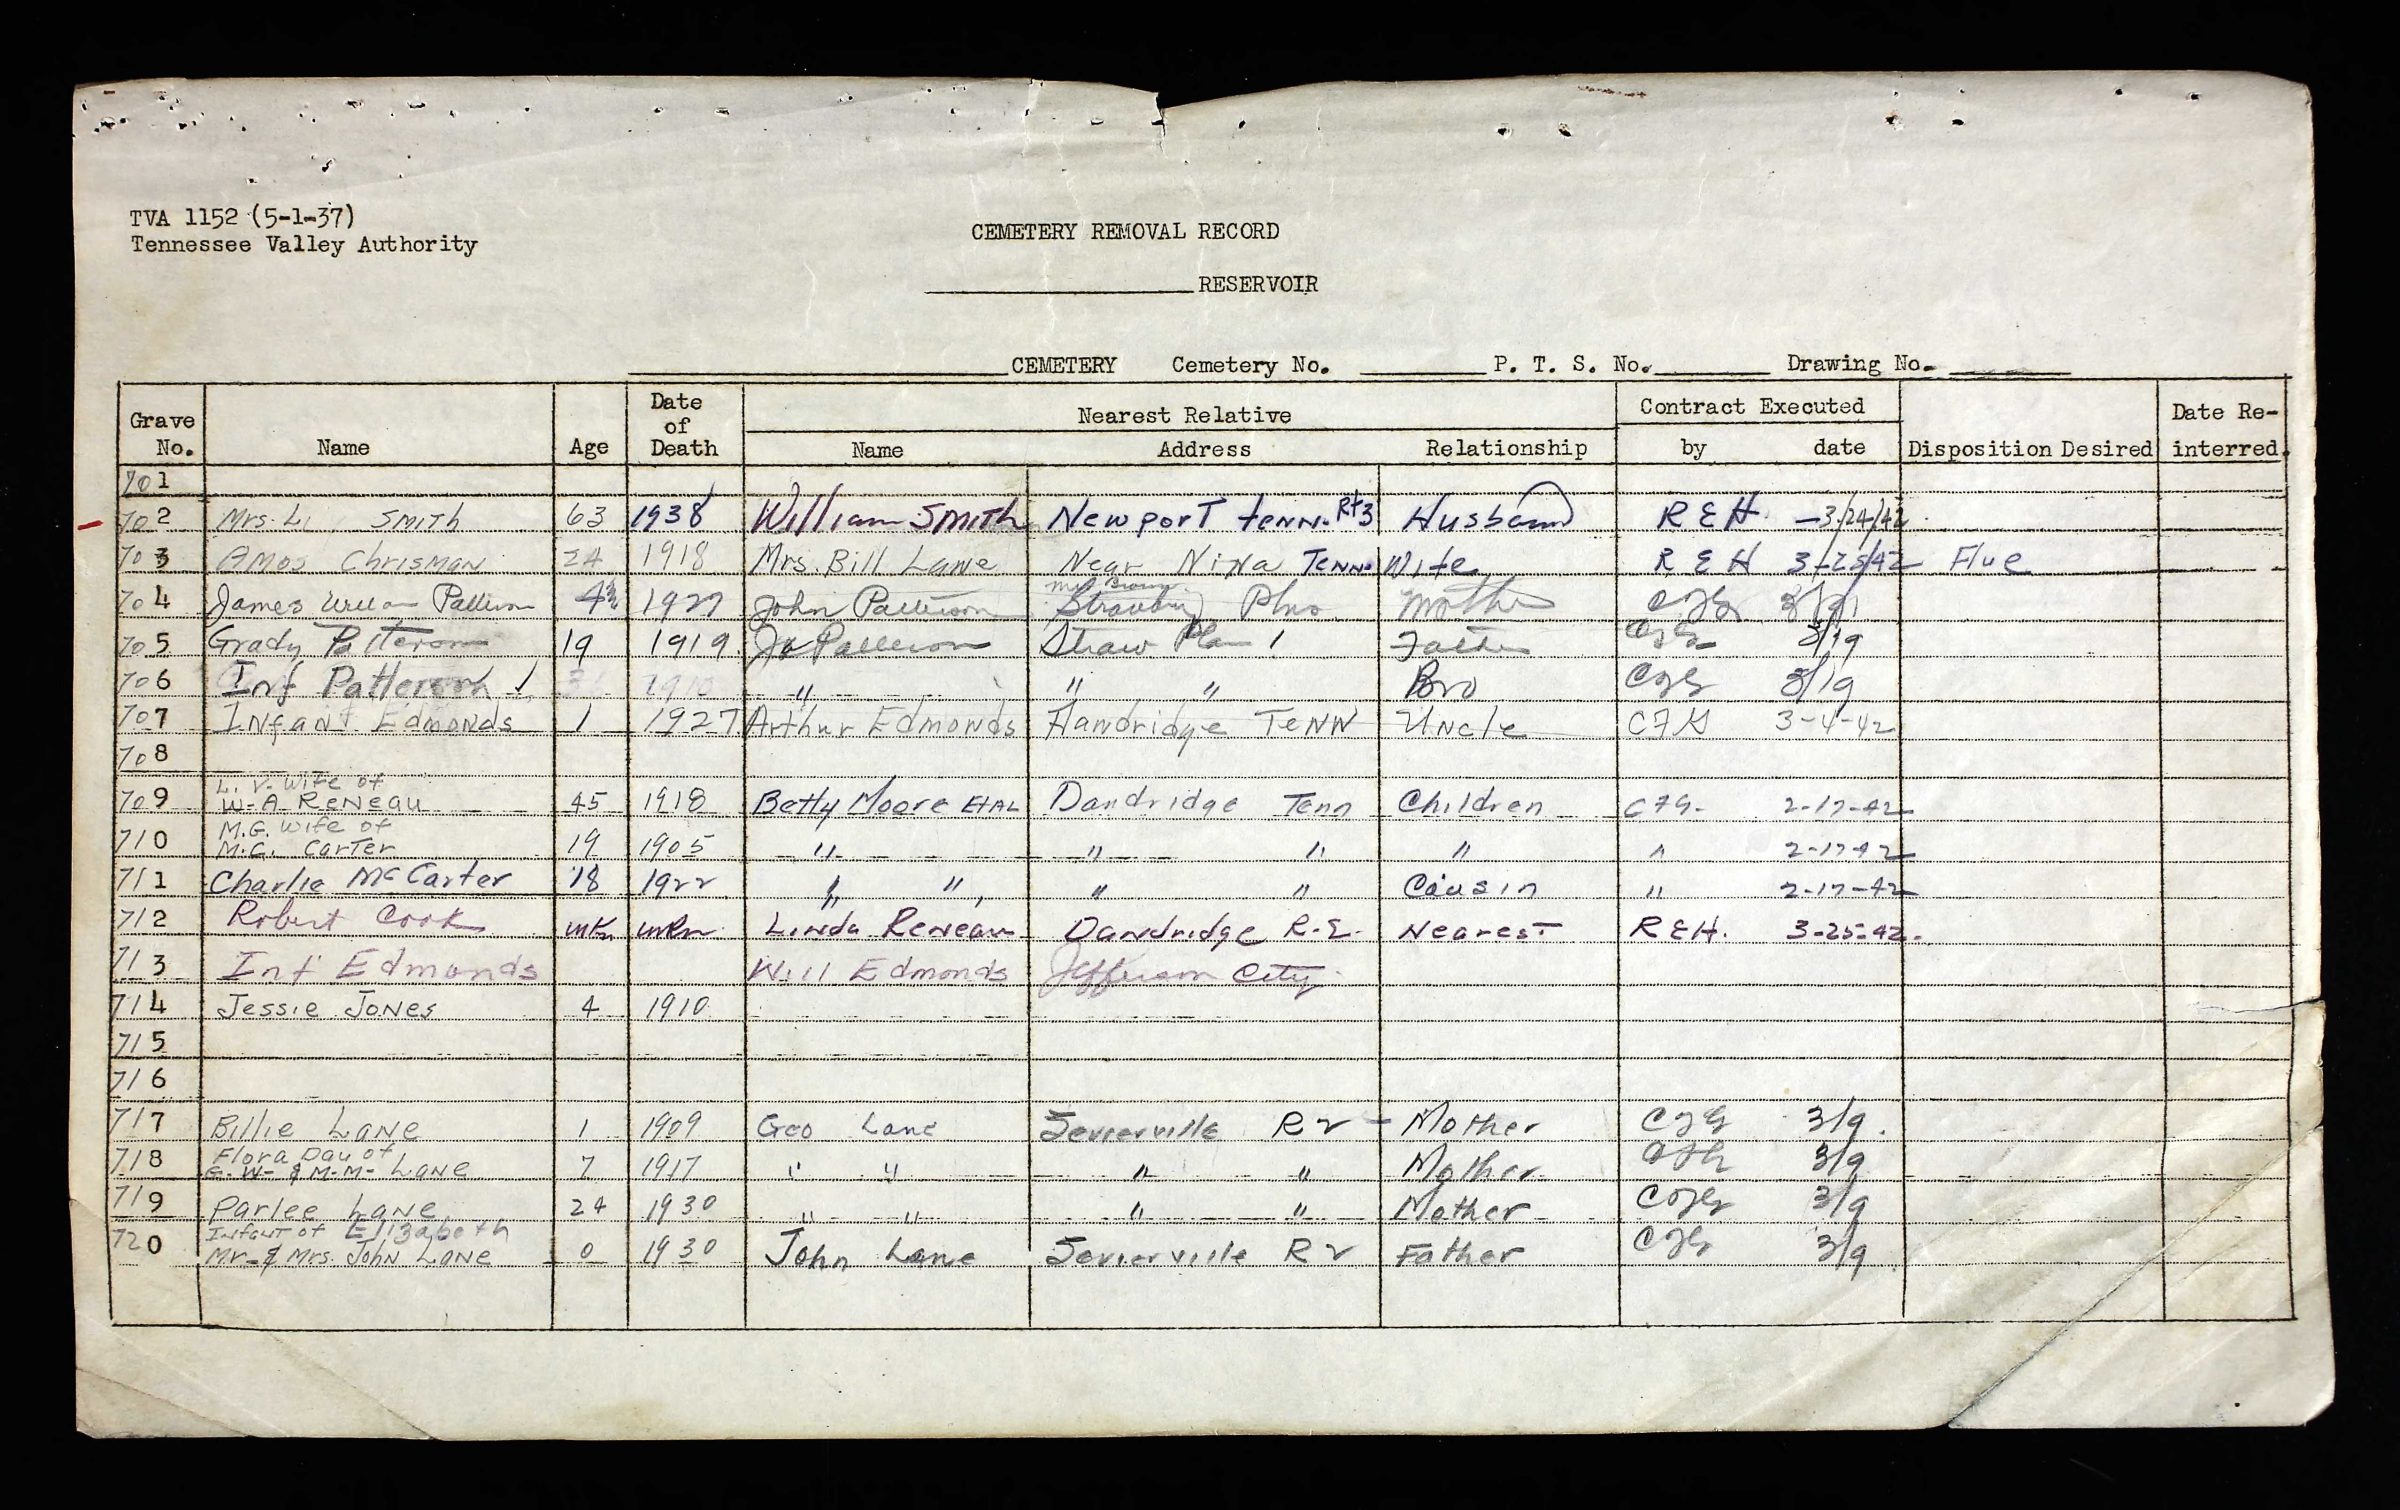 TVA 1152 (5-1-37)
Tennessee Valley Authority
CEMETERY REMOVAL RECORD
RESERVOIR
CEMETERY Cemetery No. P. T. S. No. Drawing No.
Grave No. Name Age Date of Death Nearest Relative Name Address Relationship Contract Executed by date Disposition Desired Date Re-interred.
701
702 Mrs. L. Smith 63 1938 William Smith Newport Tenn. Rt 3 Husband R E H - 3/24/42
703 Amos Chrisman 24 1918 Mrs. Bill Lane Near Nina Tenn. Wife R E H 3-25/42 Flue
704 James Patterson John Patterson Mother
705 Grady Patterson 19 1919 Jo Patterson Straw Plan Father 3/19
706 Inf Patterson ✓ 1910 " " " Bro 3/19
707 Infant Edmonds 1 1927 Arthur Edmonds Handridge Tenn Uncle 3-4-42
708
L. V. Wife of
709 W-A Reneau 45 1918 Betty Moore Etal Dandridge Tenn Children C7G- 2-17-42
M.G. Wife of
710 M.C. Carter 19 1905 " " " " " 2-17-42
711 Charlie McCarter 18 1922 " " " " Cousin " 2-17-42
712 Robert Cook unkn unkn Linda Reneau Dandridge R.2. Nearest R E H. 3-25-42.
713 Inf Edmonds Will Edmonds Jefferson City
714 Jessie Jones 4 1910
715
716
717 Billie Lane 1 1909 Geo Lane Sevierville R 2 - Mother 3/9.
Flora Dau of
718 G. W- & M-M- Lane 7 1917 " " " " Mother 3/9
719 Parlee Lane 24 1930 " " " " Mother 3/9
Infant of Elizabeth
720 Mr- & Mrs. John Lane 0 1930 John Lane Sevierville R 2 Father 3/9